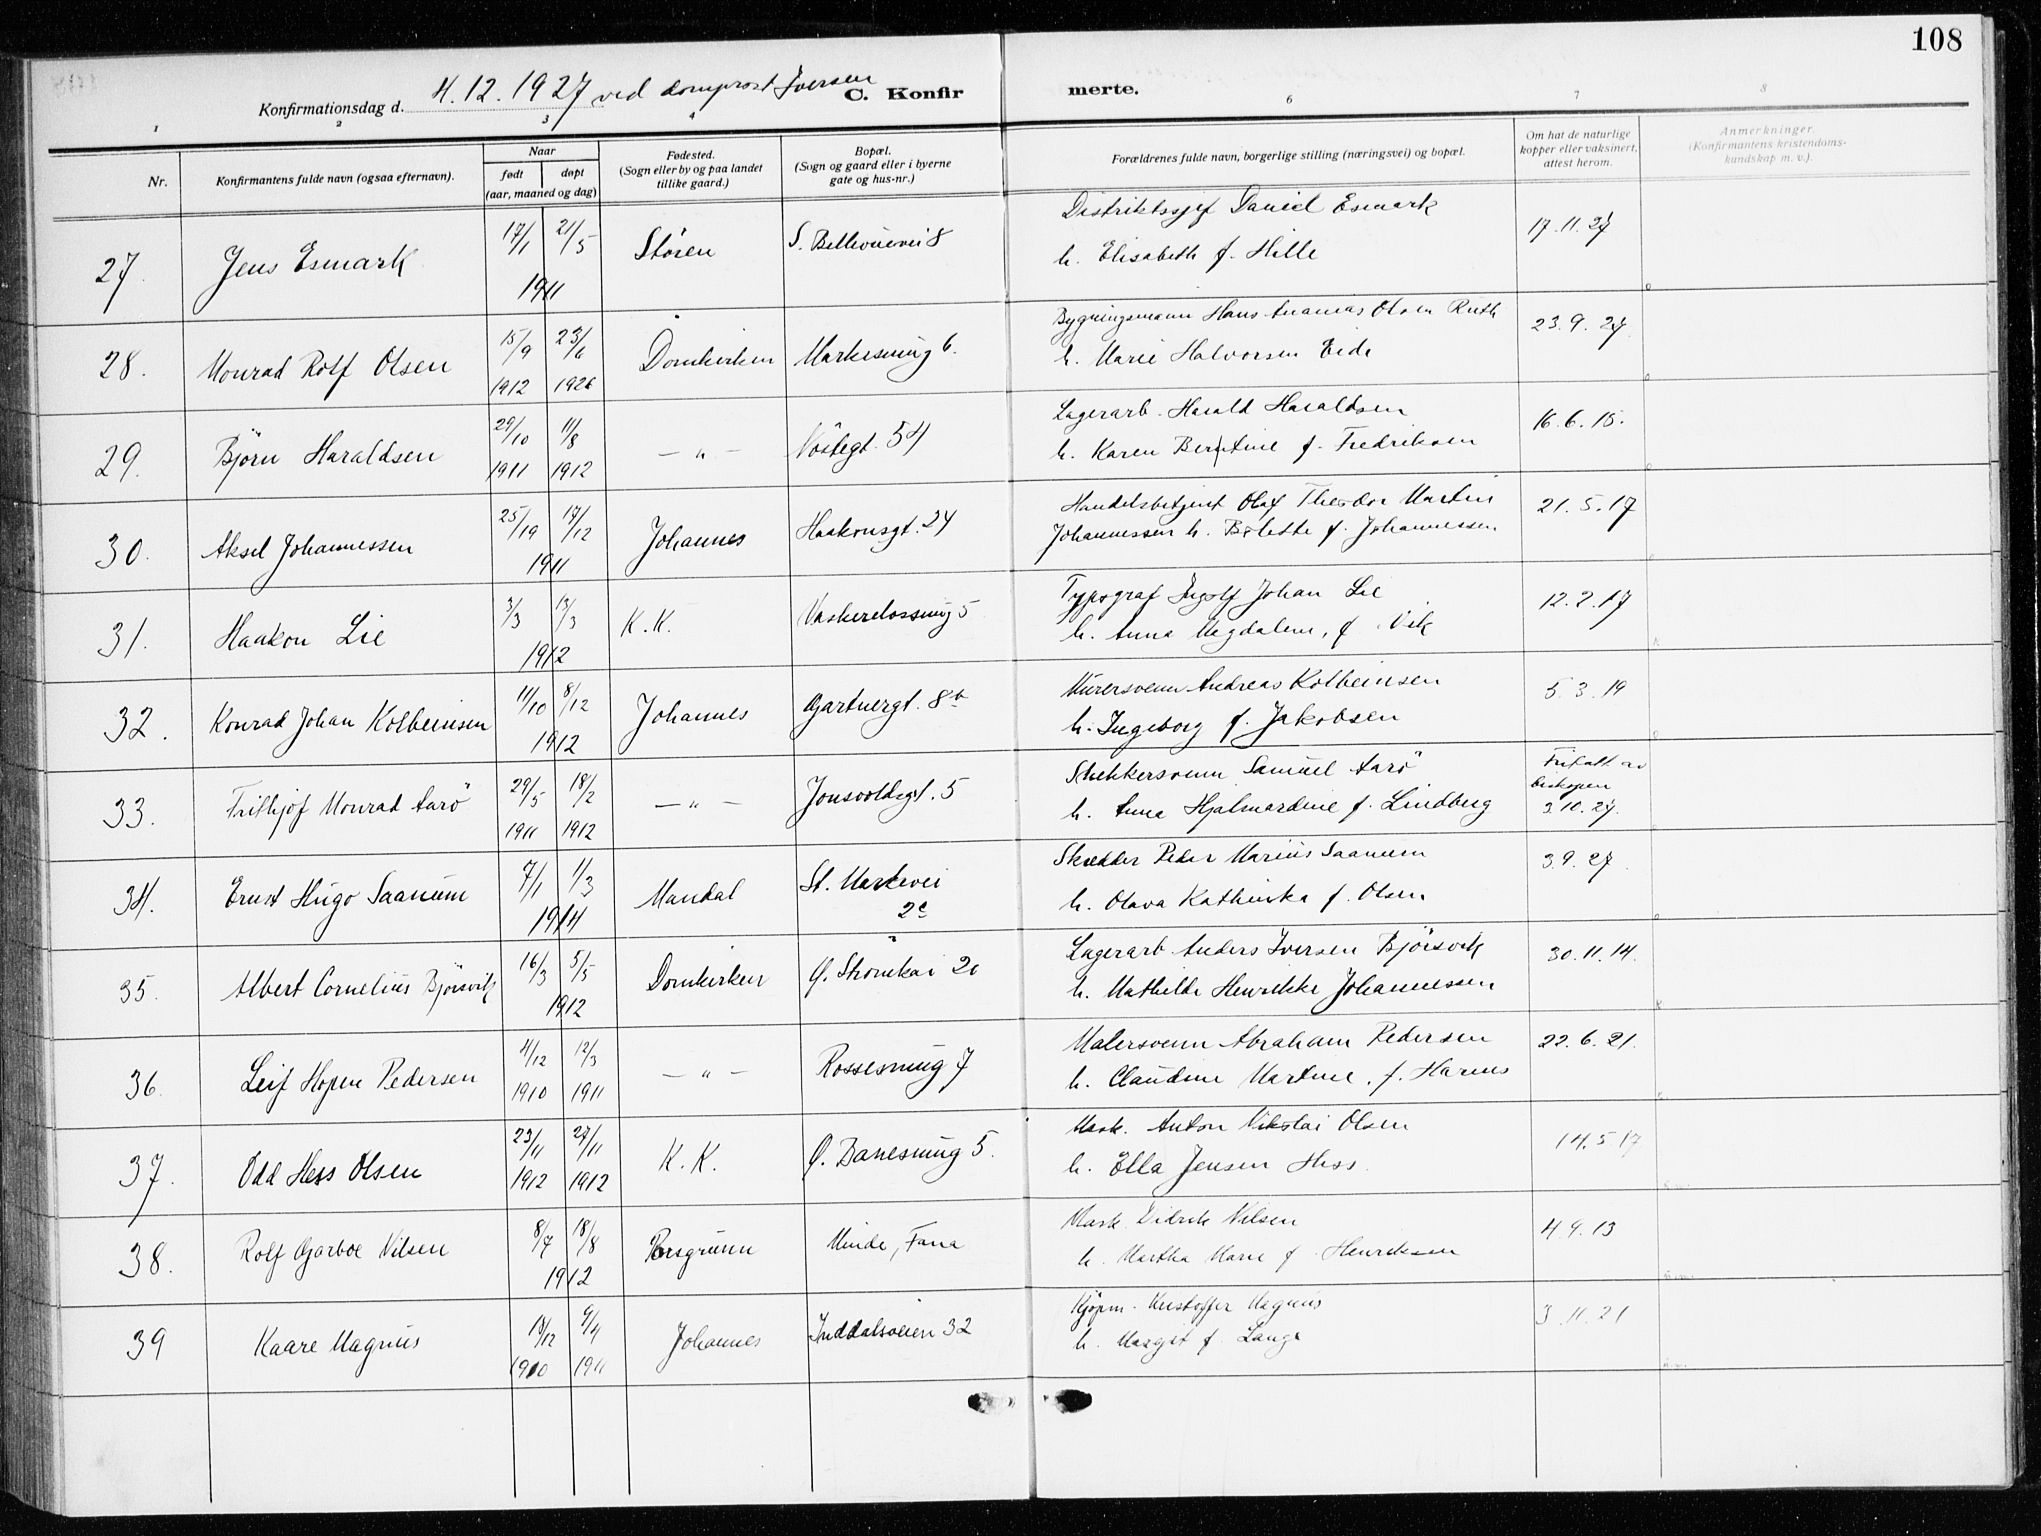 108
Konfirmationsdag d. 4.12.1927 ved domprost Iversen
C. Konfirmerte.
1 2 3 4 6 7 8
Nr.
Konfirmantens fulde navn (ogsaa efternavn).
Naar
født døpt
(aar, maaned og dag)
Fødested.
(Sogn eller by og paa landet
tillike gaard.)
Bopæl.
(Sogn og gaard eller i byerne
gate og hus-nr.)
Forældrenes fulde navn, borgerlige stilling (næringsvei) og bopæl.
Om hat de naturlige
kopper eller vaksinert,
attest herom.
Anmerkninger
(Konfirmantens kristendoms-
kundskap m. v.).
27. Jens Esmark 17/1 21/5 1911 Støren S. Bellevuevei 8
Distriktssjef Daniel Esmark
h. Elisabeth f. Hille
17.11.27
28. Monrad Rolf Olsen 15/9 1912 23/6 1926 Domkirken Markesmug 6.
Bygningsmann Hans Ananias Olsen Ruth
h. Marie Halvorsen Eide
23.9.27
29. Bjørn Haraldsen 29/10 1911 11/8 1912 — " — Nöstegt. 54
Lagerarb. Harald Haraldsen
h. Karen Berntine f. Fredriksen
16.6.15.
30. Aksel Johannessen 25/19 17/12 1911 Johannes Haakonsgt. 24
Handelsbetjent Olaf Theodor Martin
Johannessen h. Bolette f. Johannessen
21.5.17
31. Haakon Lie 3/3 13/3 1912 K.K. Vaskerelvssmug 5
Typograf Ingolf Johan Lie
h. Anna Magdalene, f. Vik
12.2.17
32. Konrad Johan Kolbeinsen 11/10 8/12 1912 Johannes Gartnergt. 8b
Murersvenn Andreas Kolbeinsen
h. Ingeborg f. Jakobsen
5.3.19
33. Frithjof Monrad Aarö 29/5 1911 18/2 1912 — " — Jonsvoldsgt. 5
Snekkersvenn Samuel Aarö
h. Anna Hjalmardine f. Lindberg
Fritatt av
biskopen
3.10.27.
34. Ernst Hugo Saanum 7/1 1/3 1914 Mandal St. Markevei
2c
Skredder Peder Marius Saanum
h. Olava Kathinka f. Olsen
3.9.27.
35. Albert Cornelius Björsvik 16/3 5/5 1912 Domkirken Ö. Strömkai 20
Lagerarb Anders Iversen Björsvik
h. Mathilde Henrikke Johannessen
30.11.14.
36. Leif Hopen Pedersen 4/12 1910 12/3 1911 — " — Rossesmug 7
Malersvenn Abraham Pedersen
h. Claudine Martine, f. Harms
22.6.21.
37. Odd Hess Olsen 23/11 1912 27/11 1912 K.K. Ö. Banesmug 5.
Mask. Anton Nikolai Olsen
h. Ella Jensen Hess.
14.5.17
38. Rolf Garboe Nilsen 8/7 18/8 1912 Porsgrunn Minde, Fana
Mask. Didrik Nilsen
h. Martha Marie f. Henriksen
4.9.13
39 Kaare Magnus 19/12 1910 9/4 1911 Johannes Inddalsveien 32
Kjöpm. Kristoffer Magnus
h. Margit f. Lange
3.11.21